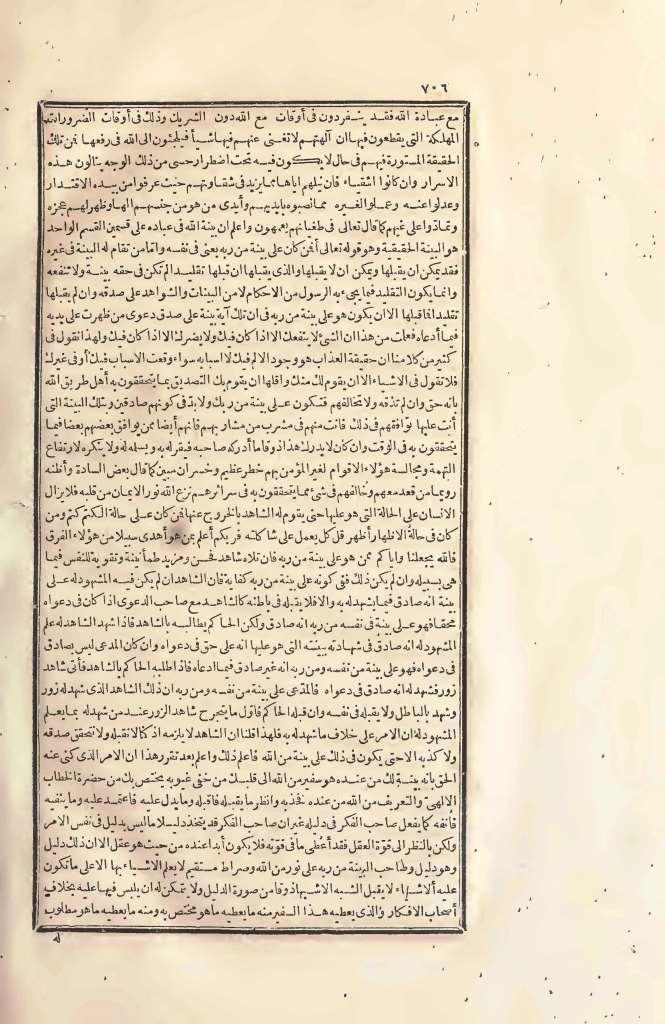 ٧٠٦
مع عبادة الله فقد ينفردون فى أوقات مع الله دون الشريك وذلك فى أوقات الضرورات
المهلكة التى يقطعون فيها ان آلهتهم لا تغنى عنهم فيها شيأ فيلجئون الى الله فى رفعها فمن تلك
الحقيقة المستورة فيهم فى حال لا يكون فيه تحت اضطرار حسى من ذلك الوجه ينالون هذه
الاسرار وان كانوا أشقياء فان نيلهم اياها مما يزيد فى شقاوتهم حيث عرفوا من بيده الاقتدار
وعدلوا عنه وعملوا لغيره مما نصبوه بايديهم وأيدى من هو من جنسهم الها وظهر لهم عجزه
وتمادوا على غيهم كما قال تعالى فى طغيانهم يعمهون واعلم ان بينة الله فى عباده على قسمين القسم الواحد
هو البينة الحقيقية وهو قوله تعالى أفمن كان على بينة من ربه يعنى فى نفسه وامّا من تقام له البينة فى غيره
فقد يمكن ان يقبلها ويمكن ان لا يقبلها والذى يقبلها ان قبلها تقليدا لم تكن فى حقه بينة ولا تنفعه
وانما يكون التقليد فيما يجىء به الرسول من الاحكام لا من البينات والشواهد على صدقه وان لم يقبلها
تقليدا فما قبلها الا ان يكون هو على بينة من ربه فى ان تلك آية بينة على صدق دعوى من ظهرت على يديه
فيما أدعاه فعلمت من هذا ان الشئ لا ينفعك الا اذا كان فيك ولا يضرك الا اذا كان فيك ولهذا نقول فى
كثير من كلامنا ان حقيقة العذاب هو وجود الالم فيك لا أسبابه سواء وقعت الاسباب فيك أو فى غيرك
فلا تقول فى الاشياء الا ان يقوم لك منك واقلها ان يقوم بك التصديق بما يتحققون به أهل طريق الله
بانه حق وان لم تذقه ولا تخالفهم فتكون على بينة من ربك ولا بدّ فى كونهم صادقين وبتلك البينة التى
أنت عليها توافقهم فى ذلك فانت منهم فى مشرب من مشاربهم فانهم أيضا ممن يوافق بعضهم بعضا فيما
يتحققون به فى الوقت وان كان لا يدرك هذا ذوقا ما أدركه صاحبه فيقر له به ويسلمه له ولا ينكره لارتفاع
التهمة ومجالسة هؤلاء الاقوام لغير المؤمن بهم خطر عظيم وخسران مبين كما قال بعض السادة وأظنه
رويما من قعد معهم وخالفهم فى شئ مما يتحققون به فى سرائرهم نزع الله نور الايمان من قلبه فلا يزال
الانسان على الحالة التى هو عليها حتى يقوم له الشاهد بالخروج عنها فمن كان على حالة الكتم كتم ومن
كان فى حالة الاظهار أظهر قل كل يعمل على شاكلته فربكم أعلم بمن هو أهدى سبيلا من هؤلاء الفرق
فالله يجعلنا واياكم ممن هو على بينة من ربه فان تلاه شاهد فحسن ومزيد طمأنينة وتقوية للنفس فيما
هى بسبيله وان لم يكن ذلك ففى كونه على بينة من ربه كفاية فان الشاهد ان لم يكن فيه المشهود له على
بينة انه صادق فيما يشهد له به والا فلا يقبله فى باطنه كالشاهد مع صاحب الدعوى اذا كان فى دعواه
محقا فهو على بينة فى نفسه من ربه انه صادق ولكن الحاكم يطالبه بالشاهد فاذا شهد الشاهد له علم
المشهود له انه صادق فى شهادته ببينته التى هو عليها انه على حق فى دعواه وان كان المدعى ليس بصادق
فى دعواه فهو على بينة من نفسه ومن ربه انه غير صادق فيما ادعاه فاذا طلبه الحاكم بالشاهد فأتى شاهد
زور فشهد له انه صادق فى دعواه فالمدعى على بينة من نفسه ومن ربه ان ذلك الشاهد الذى شهد له زور
وشهد بالباطل ولا يقبله فى نفسه وان قبله الحاكم فاوّل ما يتجرح شاهد الزور عند من شهد له بما يعلم
المشهود له ان الامر على خلاف ما شهد له به فلهذا قلنا ان الشاهد لا يلزمه اذ كنا لا نقبله ولا نتحقق صدقه
ولا كذبه الا حتى يكون فى ذلك على بينة من الله فاعلم ذلك واعلم بعد تقرر هذا ان الامر الذى كنى عنه
الحق بانه بينة لك من عنده هو سفير من الله الى قلبك من خفى غيوبه يختص بك من حضرة الخطاب
الالهىّ والتعريف من الله من عنده نخذ به وانظر ما يقبله فاقبله وما يدل عليه فاعتمد عليه وما ينفيه
فانفه كما يفعل صاحب الفكر فى دليله غير ان صاحب الفكر قد يتخذ دليلا ما ليس بدليل فى نفس الامر
ولكن بالنظر الى قوّة العقل فقد أعطى ما فى قوّته فلا يكون أبدا عنده من حيث هو عقل الا ان ذلك دليل
وهو دليل وصاحب البينة من ربه على نور من الله وصراط مستقيم لا يعلم الاشياء بها الا على ما تكون
عليه الاشياء لا يقبل الشبه الا شبها ذوقا من صورة الدليل ولا يتمكن له ان يلبس فيها عليه بخلاف
أصحاب الافكار والذى يعطيه هذا السفير منه ما يعطيه ما هو مختص به ومنه ما يعطيه ما هو مطلوب
له